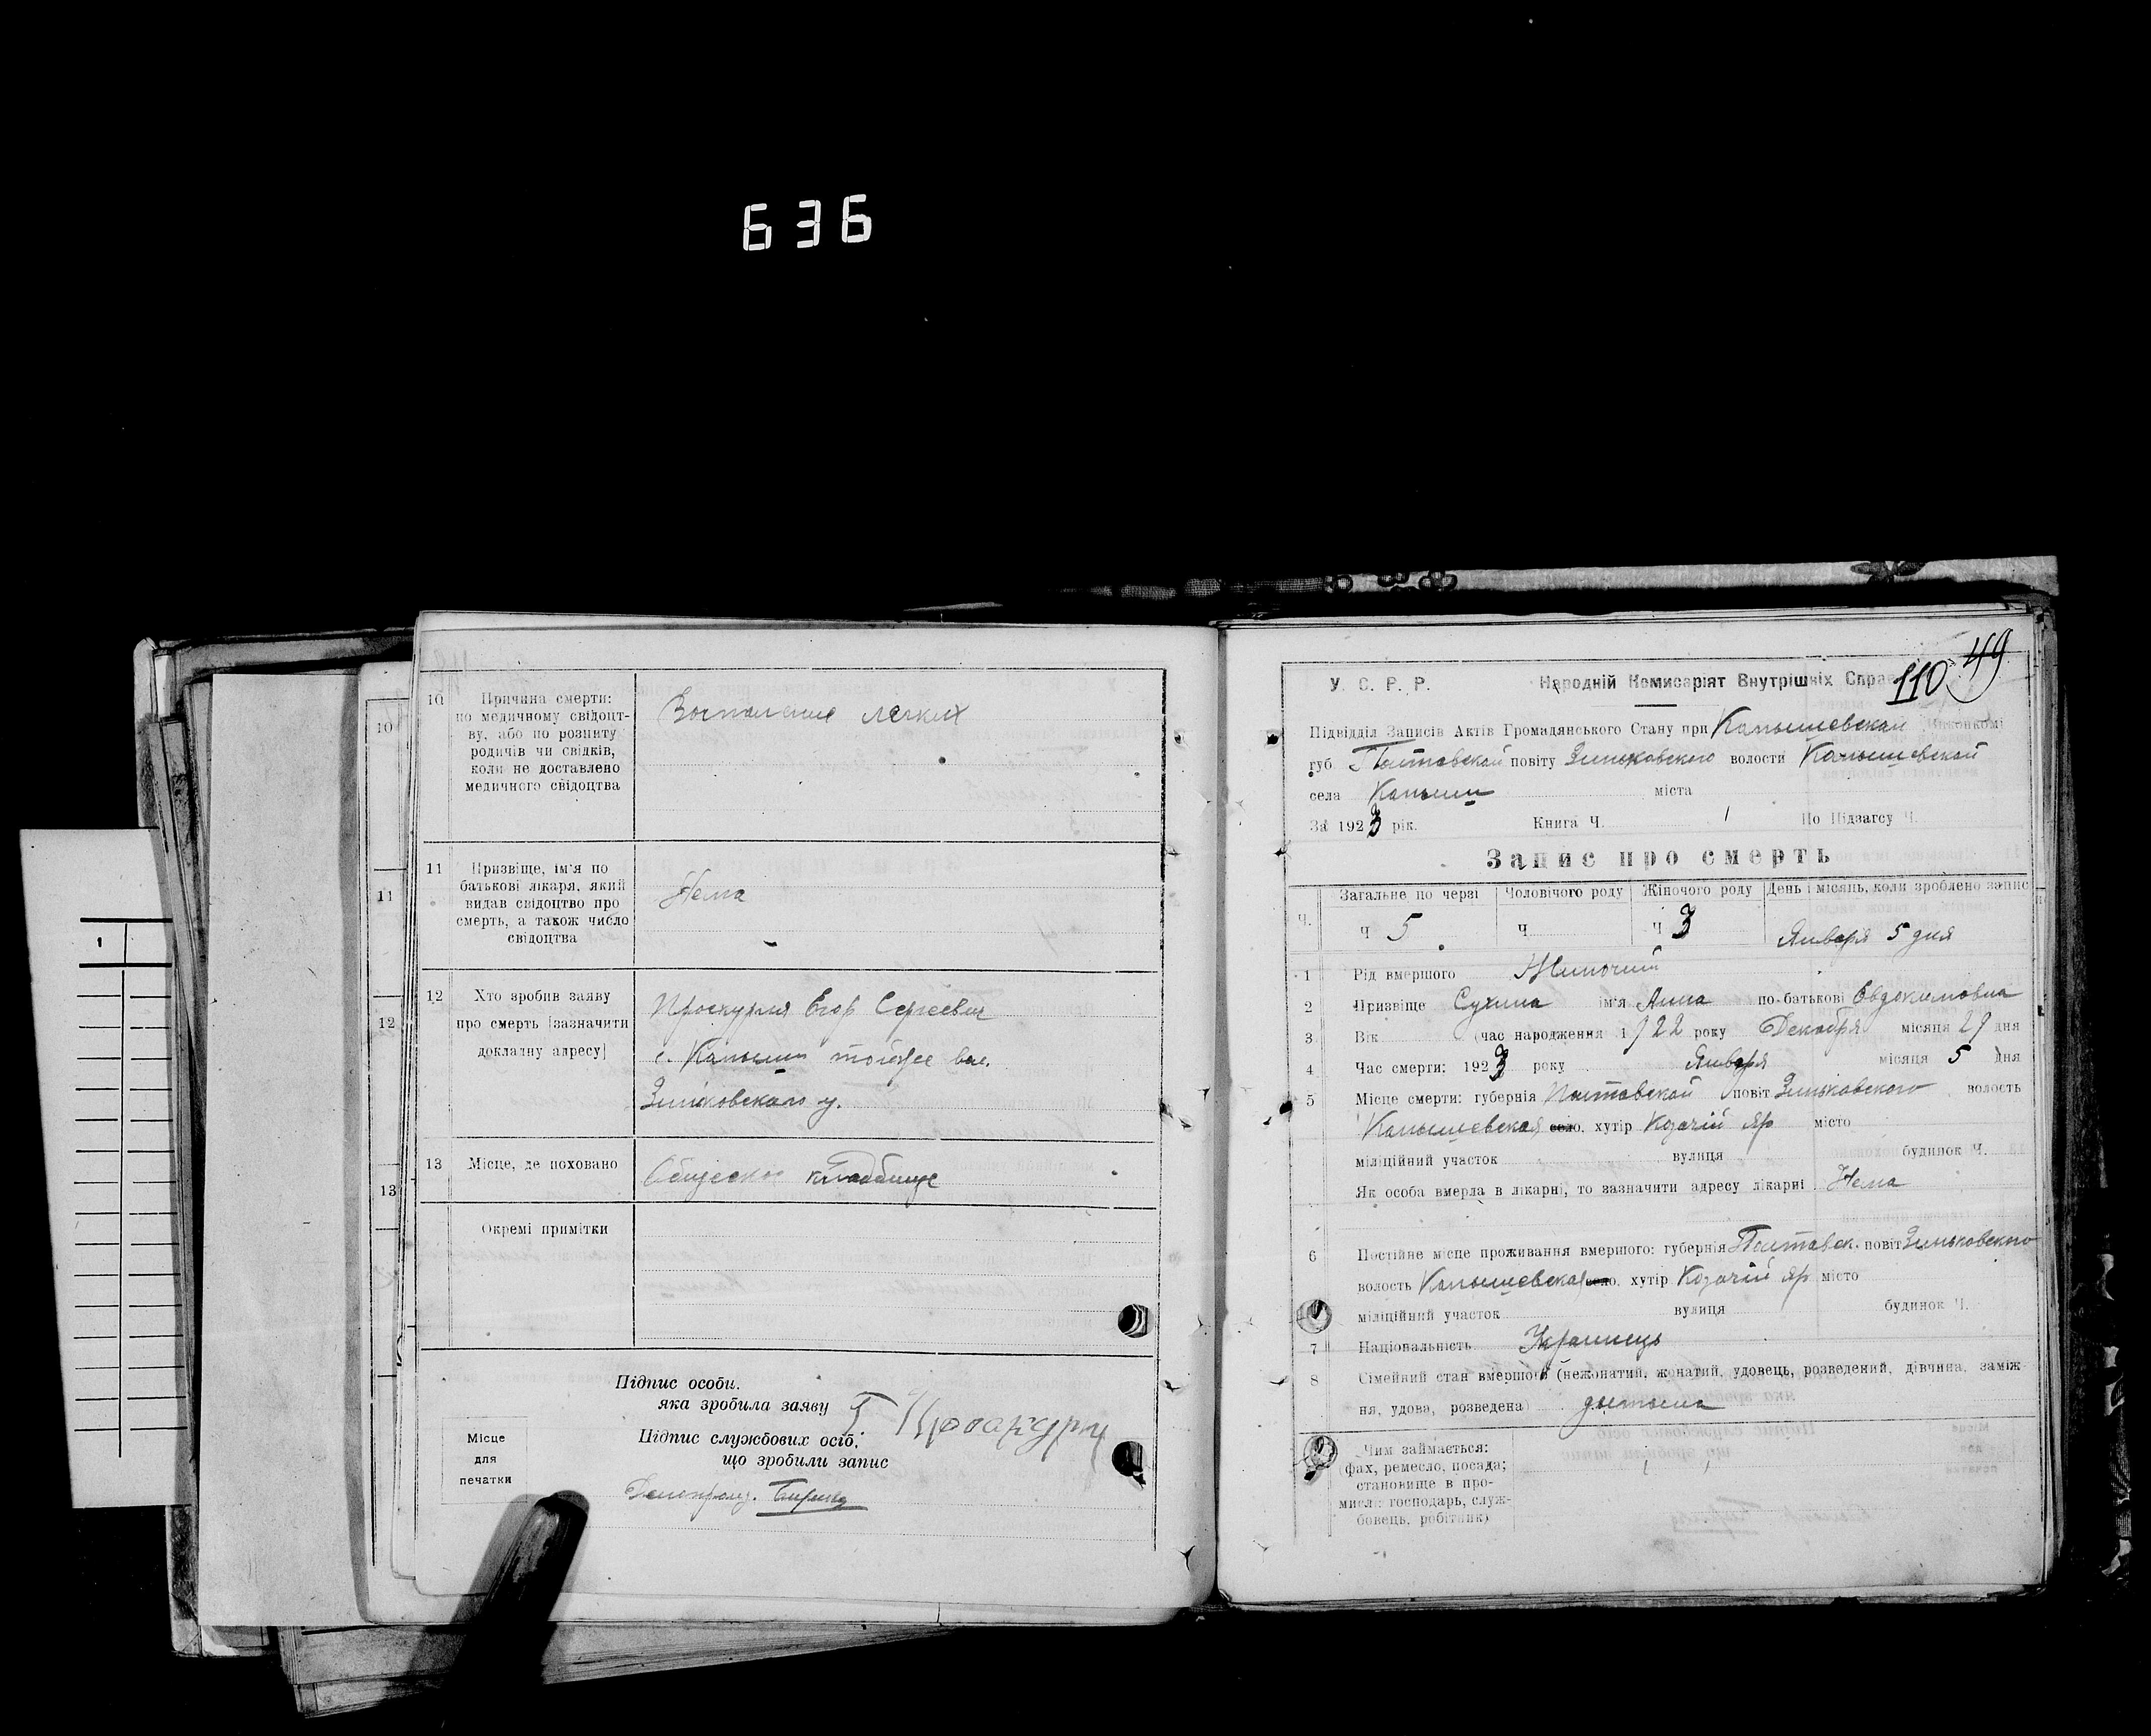 636
10
Причина смерти:
по медичному свідоцт-
ву, або по розпиту
родичів чи свідків,
коли не доставлено
медичного свідоцтва
Воспаление легких
11
Призвіще, ім'я по
батькові лікаря, який
видав свідоцтво про
смерть, а також число
свідоцтва
Нема
12
Хто зробив заяву
про смерть [зазначити
докладну адресу]
Егор Сергеевич
с. Камыши тойже вол.
Зиньковского у.
13
Місце, де поховано
Общеское кладбище
Окремі примітки
Підпис особи.
яка зробила заяву
Підпис службових осіб,
що зробили запис
Місце
для
печатки
10
11
12
13
1
110 49
У. С. Р. Р.
Народній Комисаріят Внутрішніх Справ
Підвідділ Записів Актів Громадянського Стану при Камышевской Виконкомі
губ. Полтавской повіту Зиньковского волости Камышевской
села Камыши міста
За 1923 рік. Книга Ч. 1 По Підзагсу Ч.
Запис про смерть
Ч.
Загальне по черзі
Чоловічого роду
Жіночого роду
День і місяць, коли зроблено запис
Ч 5
Ч
Ч 3
Января 5 дня
1 Рід вмершого Жиночий
2 Призвіще Сухина ім'я Анна по-батькові Евдокимовна
3 Вік (час народження 1922 року Декабря місяця 29 дня
4 Час смерти: 1923 року Января місяця 5 дня
5 Місце смерти: губернія Полтавской повіт Зиньковского волость
Камышевская село, хутір Козачій Яр місто
міліційний участок вулиця будинок Ч.
Як особа вмерла в лікарні, то зазначити адресу лікарні Нема
6 Постійне місце проживання вмершого: губернія Полтавск. повіт Зиньковского
волость Камышевская село, хутір Козачій Яр місто
міліційний участок вулиця будинок Ч.
7 Національність Украинець
8 Сімейний стан вмершого (нежонатий, жонатий, удовець, розведений, дівчина, заміж-
ня, удова, розведена) дытына
Чим займається:
(фах, ремесло, посада;
становище в про-
мислі: господарь, служ-
бовець, робітник)